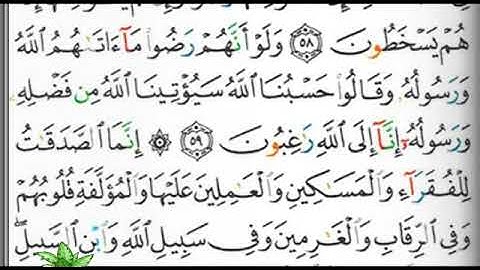 هُمْ يَسْخَطُونَ ٥٨ وَلَوْ أَنَّهُمْ رَضُوا۟ مَآ ءَاتَىٰهُمُ ٱللَّهُ
وَرَسُولُهُۥ وَقَالُوا۟ حَسْبُنَا ٱللَّهُ سَيُؤْتِينَا ٱللَّهُ مِن فَضْلِهِۦ
وَرَسُولُهُۥٓ إِنَّآ إِلَى ٱللَّهِ رَٰغِبُونَ ٥٩ ۞ إِنَّمَا ٱلصَّدَقَٰتُ
لِلْفُقَرَآءِ وَٱلْمَسَٰكِينِ وَٱلْعَٰمِلِينَ عَلَيْهَا وَٱلْمُؤَلَّفَةِ قُلُوبُهُمْ
وَفِى ٱلرِّقَابِ وَٱلْغَٰرِمِينَ وَفِى سَبِيلِ ٱللَّهِ وَٱبْنِ ٱلسَّبِيلِ ۖ